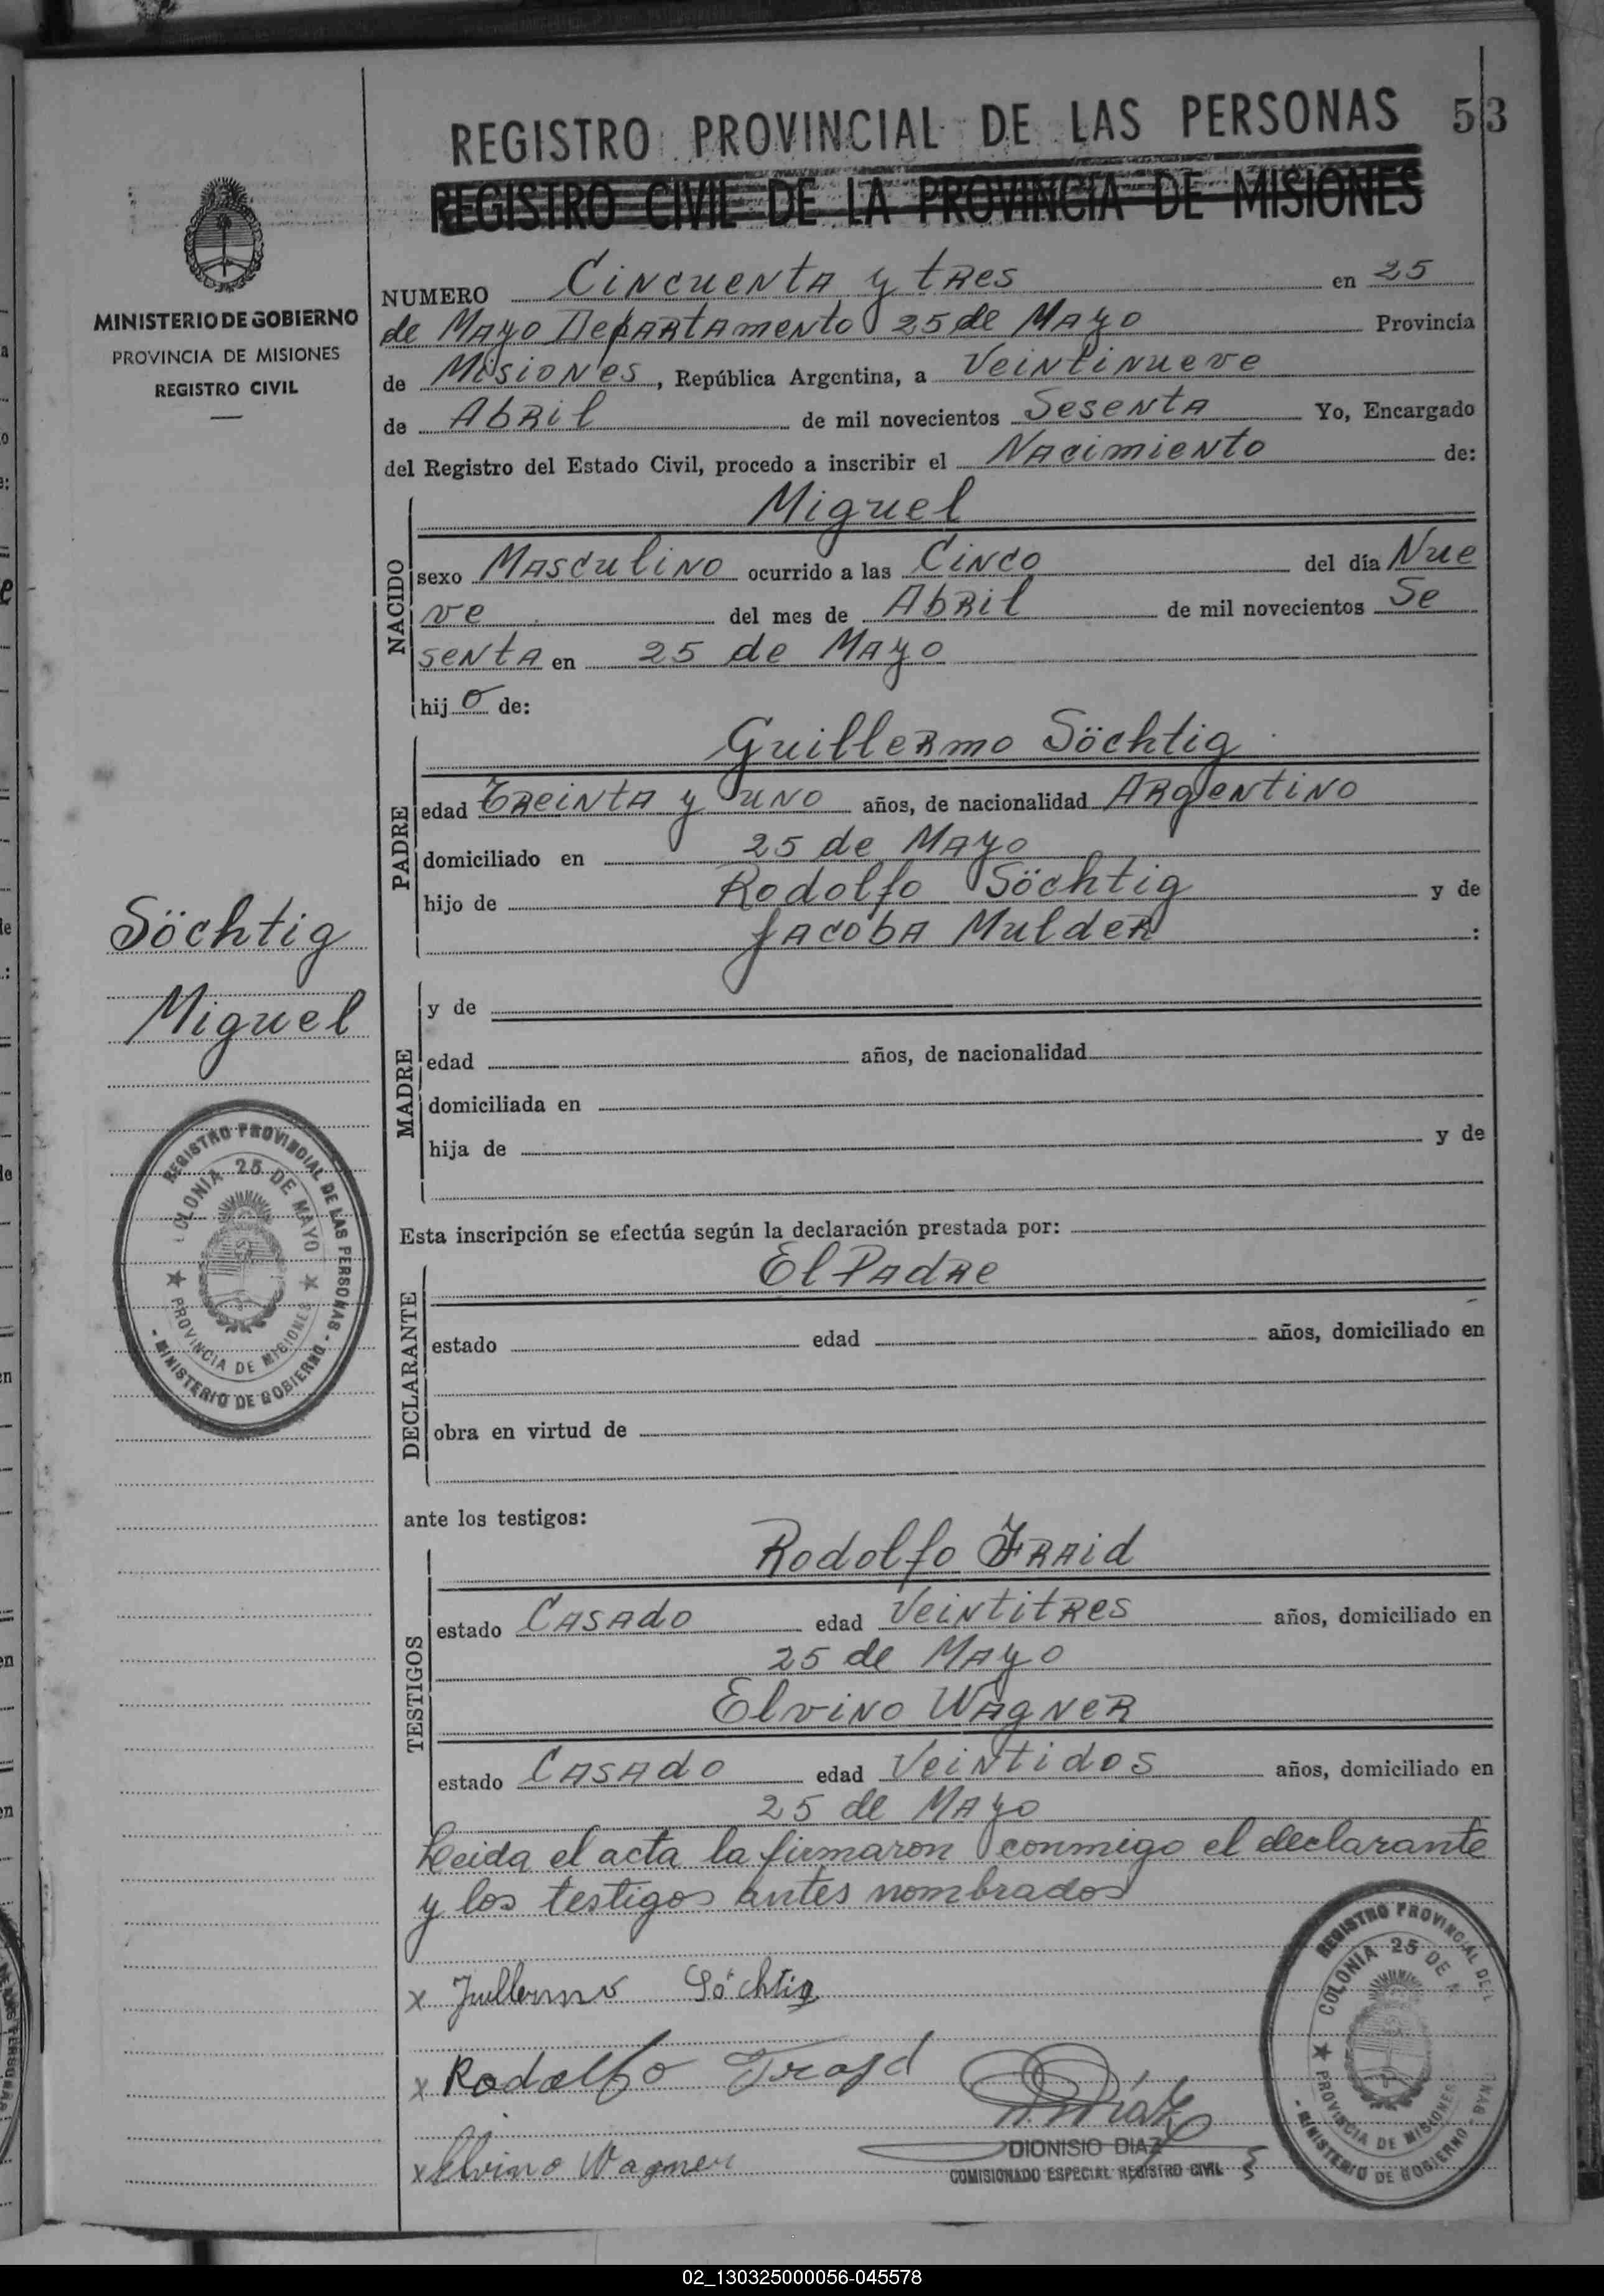 REGISTRO PROVINCIAL DE LAS PERSONAS 53
REGISTRO CIVIL DE LA PROVINCIA DE MISIONES
MINISTERIO DE GOBIERNO
PROVINCIA DE MISIONES
REGISTRO CIVIL
NUMERO Cincuenta y tres en 25
de Mayo Departamento 25 de Mayo Provincia
de Misiones, República Argentina, a Veintinueve
de Abril de mil novecientos Sesenta Yo, Encargado
del Registro del Estado Civil, procedo a inscribir el Nacimiento de:
NACIDO
Miguel
sexo Masculino ocurrido a las Cinco del día Nue
ve del mes de Abril de mil novecientos Se
senta en 25 de Mayo
hijo de:
PADRE
Guillermo Söchtig
edad Treinta y uno años, de nacionalidad Argentino
domiciliado en 25 de Mayo
hijo de Rodolfo Söchtig y de
Jacoba Mulder :
Söchtig
Miguel
MADRE
y de
edad años, de nacionalidad
domiciliada en
hija de y de
REGISTRO PROVINCIAL DE LAS PERSONAS
COLONIA 25 DE MAYO
PROVINCIA DE MISIONES
- MINISTERIO DE GOBIERNO -
Esta inscripción se efectúa según la declaración prestada por:
DECLARANTE
El Padre
estado edad años, domiciliado en
obra en virtud de
ante los testigos:
TESTIGOS
Rodolfo Fraid
estado Casado edad Veintitres años, domiciliado en
25 de Mayo
Elvino Wagner
estado Casado edad Veintidos años, domiciliado en
25 de Mayo
Leida el acta la firmaron conmigo el declarante
y los testigos antes nombrados
x Guillermo Söchtig
x Rodolfo Fraid
x Elvino Wagner
D. Díaz
DIONISIO DIAZ
COMISIONADO ESPECIAL REGISTRO CIVIL
REGISTRO PROVINCIAL DE L
COLONIA 25 DE M
PROVINCIA DE MISIONES
- MINISTERIO DE GOBIERNO -
02_130325000056-045578